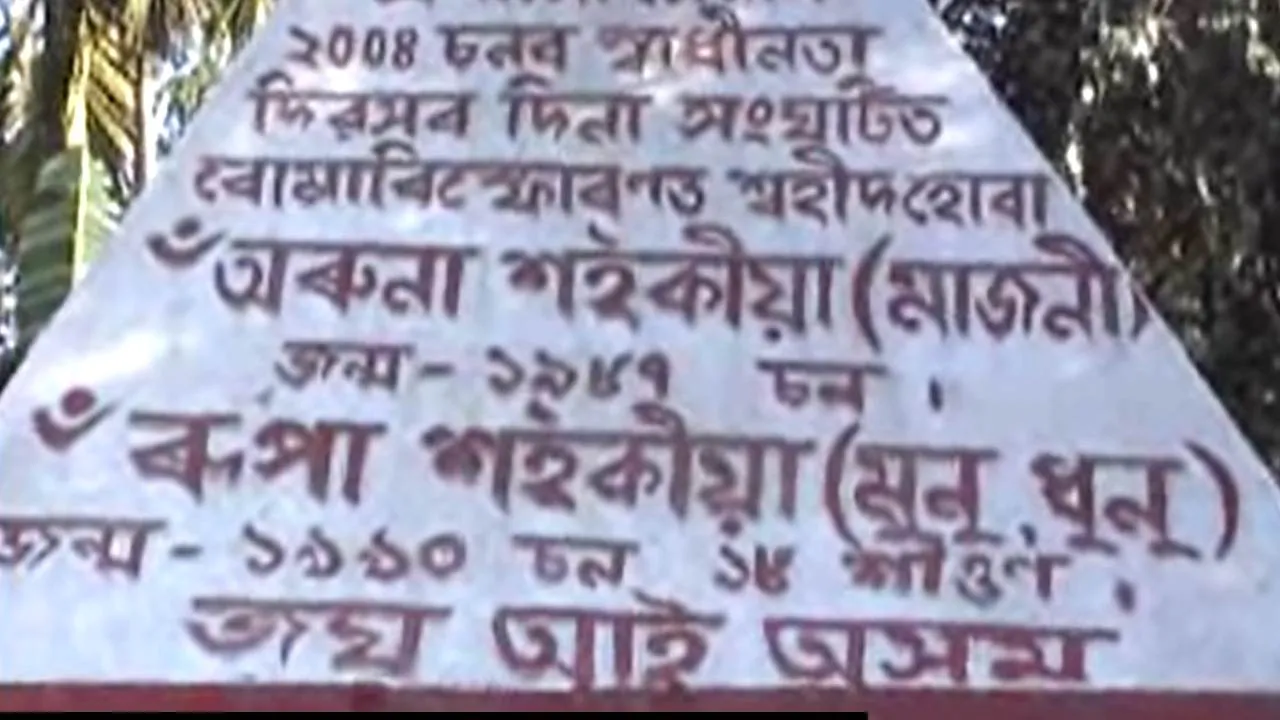 ২008 চনৰ স্বাধীনতা
দিৱসৰ দিনা সংঘটিত
বোমাবিস্ফোৰণত শ্বহীদহোবা
ঁঅৰুনা শইকীয়া (মাজনী)
জন্ম - ১৯৮৭ চন ।
ঁ ৰূপা শইকীয়া (মুনু, ধুনু)
জন্ম - ১৯৯০ চন ১৮ শাঁওণ ।
জয় আই অসম